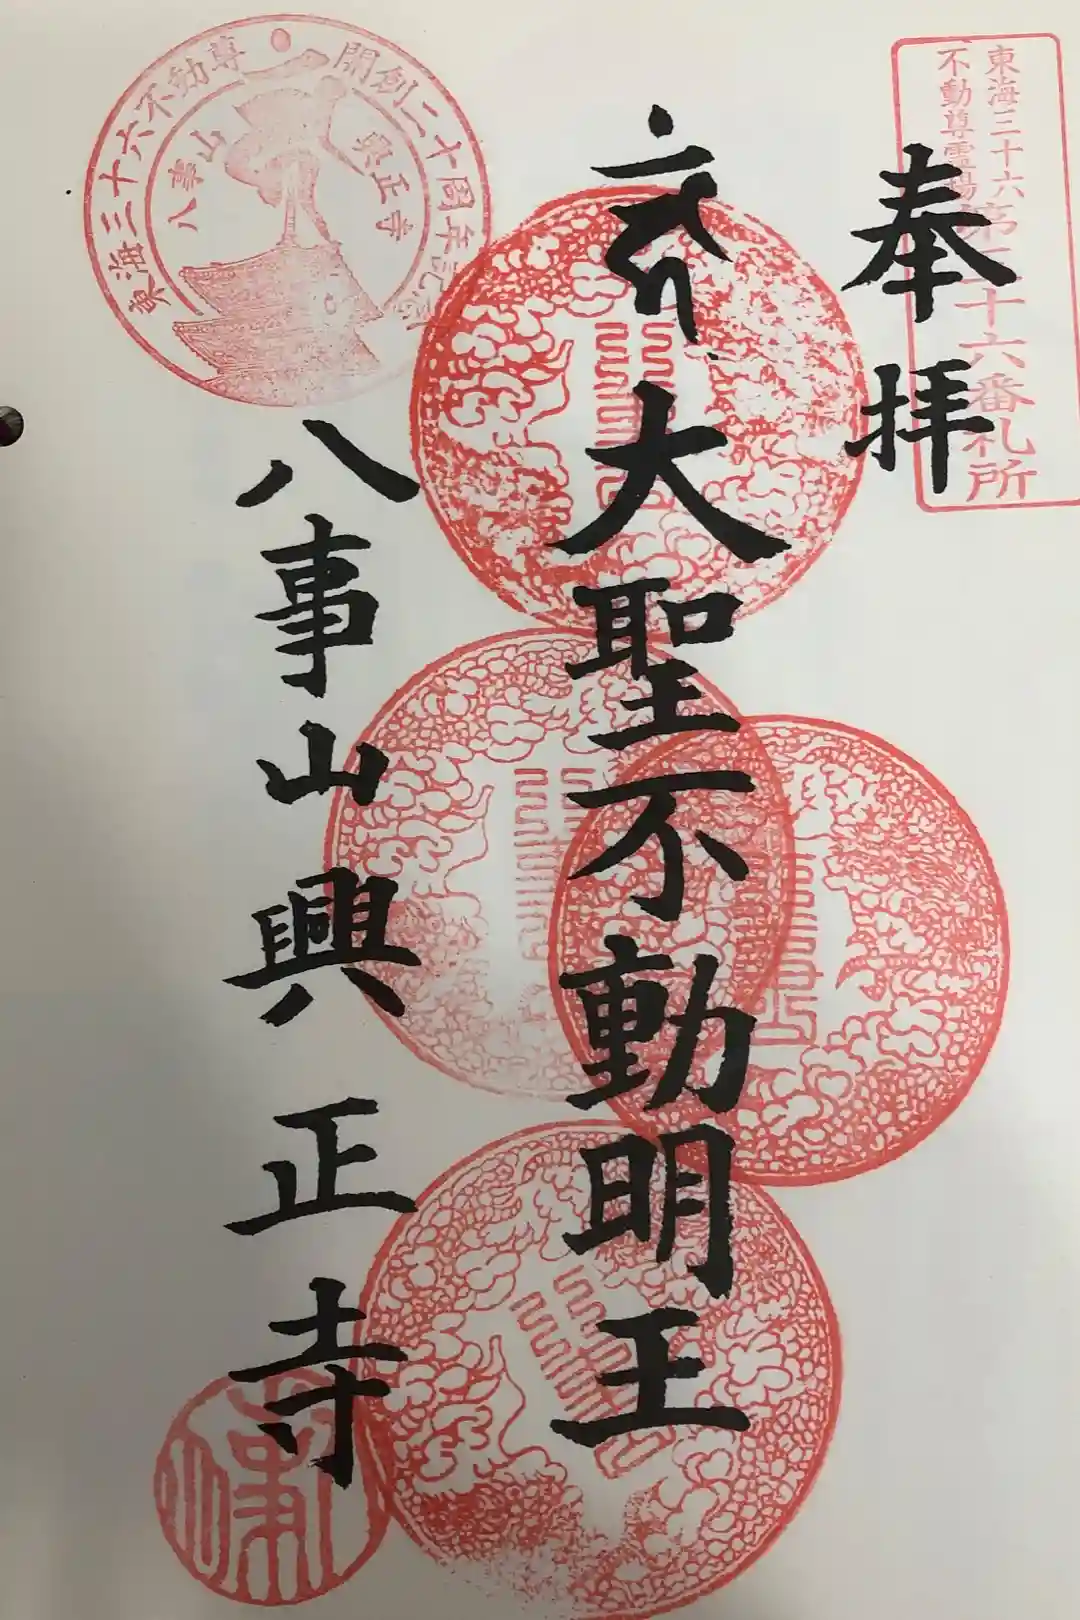 東海三十六
不動尊霊場
第三十六番札所
奉拝
大聖不動明王
八事山興正寺
東海三十六不動尊
開創二十周年記念
八事山
興正寺